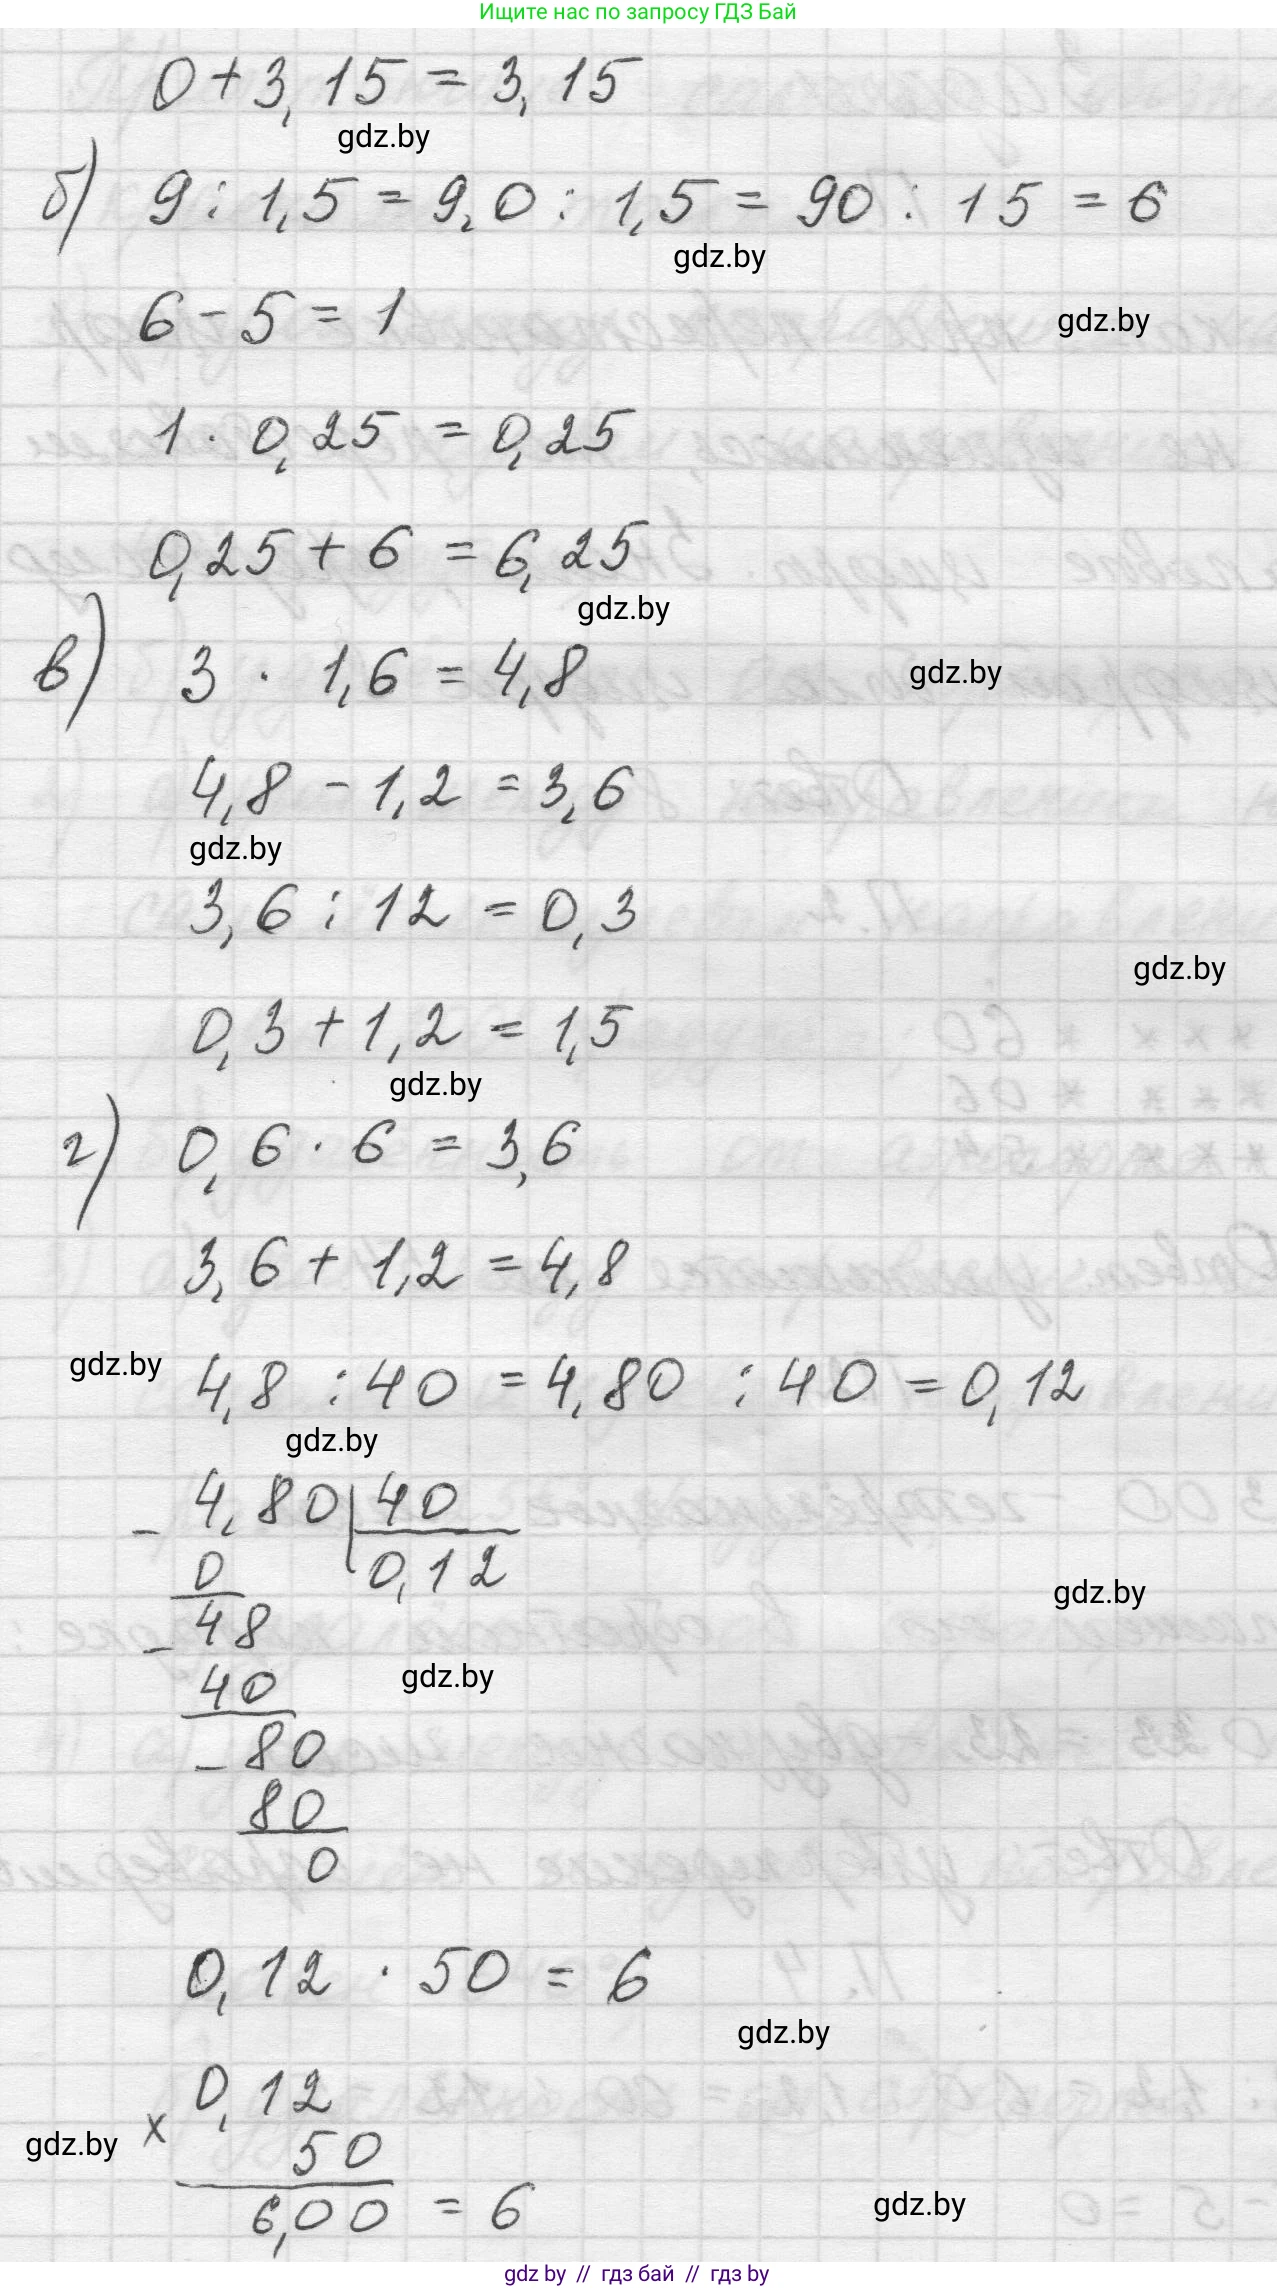 Ищите нас по запросу ГДЗ Бай
0 + 3,15 = 3,15
gdz.by
б) 9 : 1,5 = 9,0 : 1,5 = 90 : 15 = 6
gdz.by
6 - 5 = 1
gdz.by
1 · 0,25 = 0,25
0,25 + 6 = 6,25
gdz.by
в) 3 · 1,6 = 4,8
gdz.by
4,8 - 1,2 = 3,6
gdz.by
3,6 : 12 = 0,3
gdz.by
0,3 + 1,2 = 1,5
gdz.by
г) 0,6 · 6 = 3,6
3,6 + 1,2 = 4,8
gdz.by
4,8 : 40 = 4,80 : 40 = 0,12
gdz.by
- 4,80 | 40
0 0,12
gdz.by
- 48
gdz.by
40
- 80
80
0
0,12 · 50 = 6
gdz.by
0,12
gdz.by
x 50
6,00 = 6
gdz.by
gdz by // гдз бай // гдз by